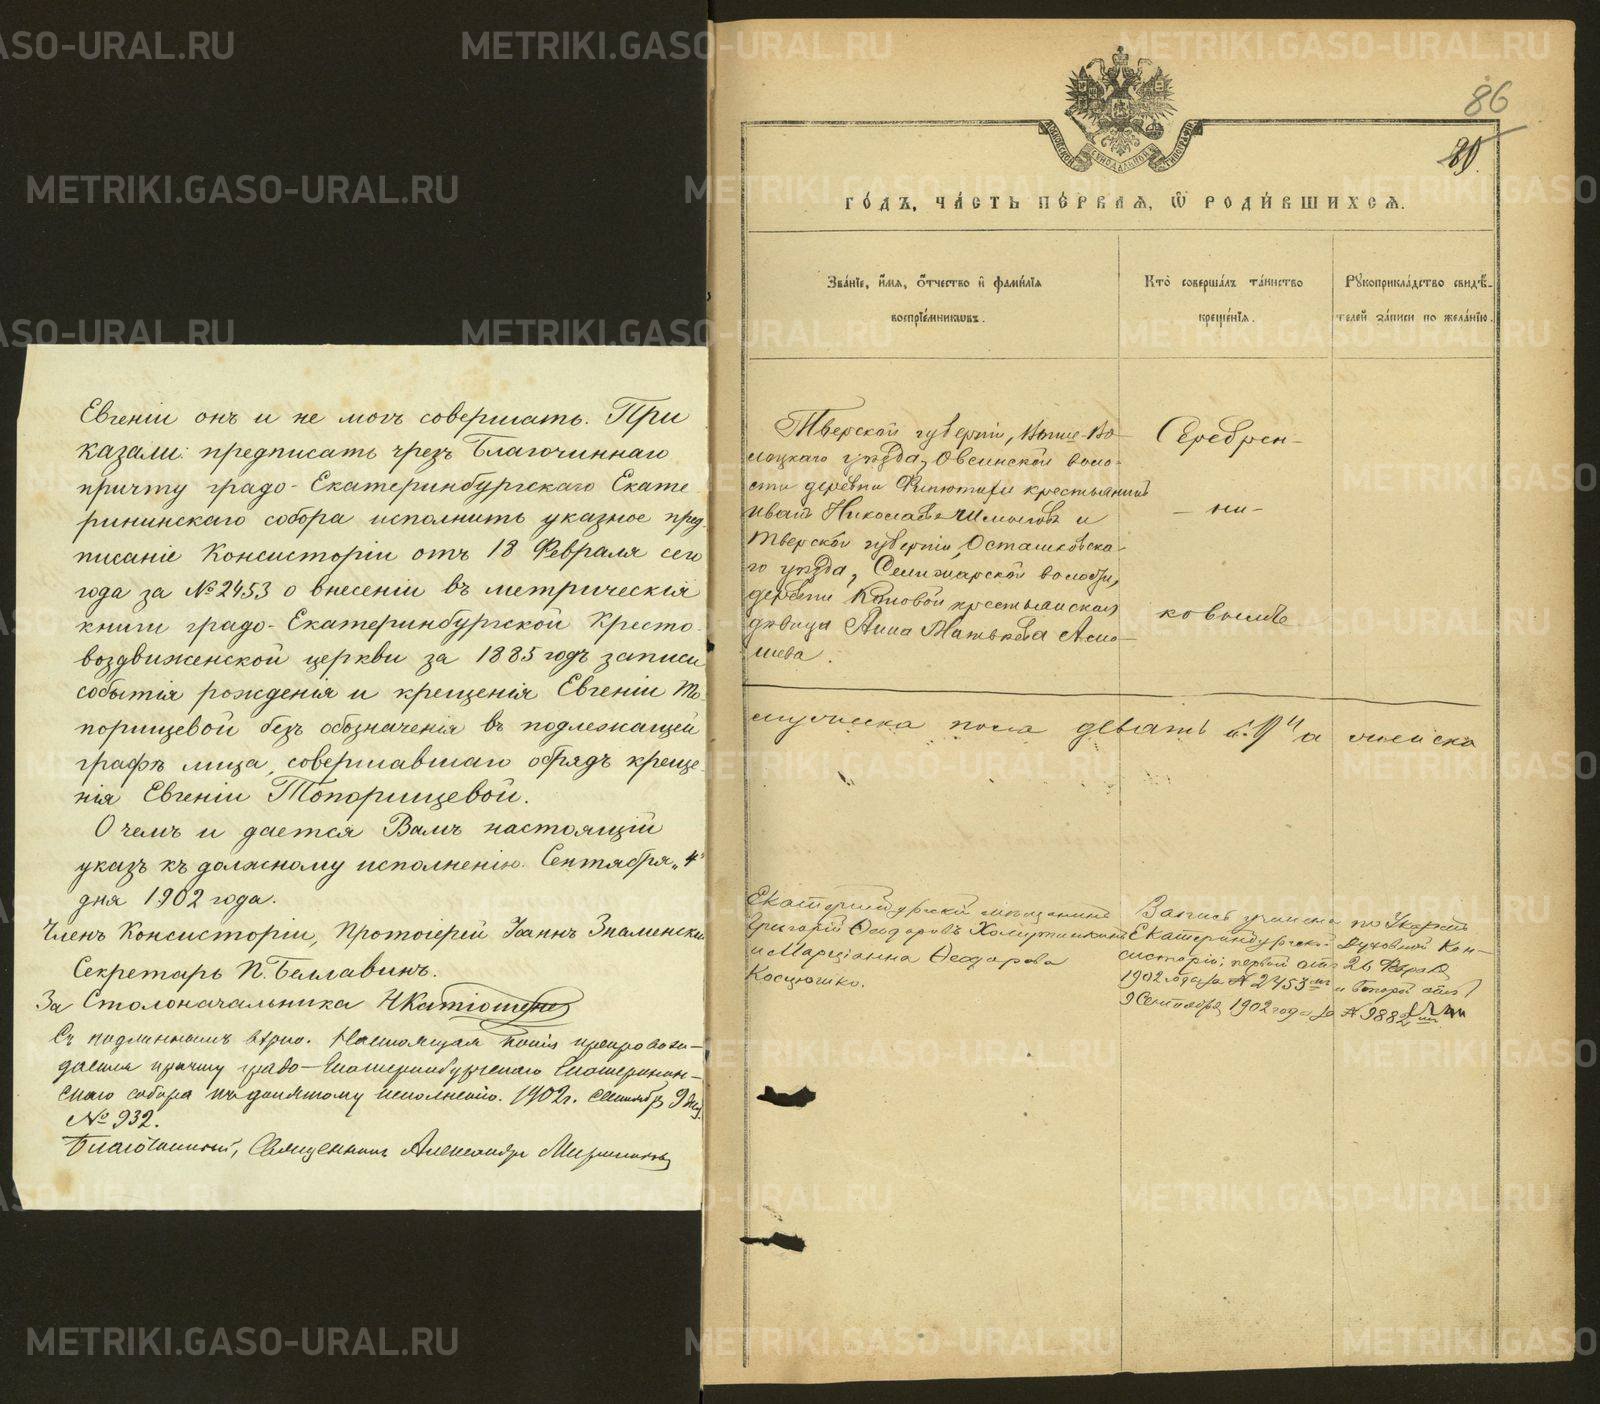 Евгеніи онъ и не могъ совершать. При
казали: предписать чрезъ Благочиннаго
причту градо-Екатеринбургскаго Екате
рининскаго собора исполнить указное пред
писаніе Консисторіи отъ 18 Февраля сего
года за № 2453 о внесеніи въ метрическія
книги градо-Екатеринбургской Кресто
воздвиженской церкви за 1885 годъ записи
событія рожденія и крещенія Евгеніи То
порищевой безъ обозначенія въ подлежащей
графѣ лица, совершавшаго обрядъ креще
нія Евгеніи Топорищевой.
О чемъ и дается Вамъ настоящій
указъ къ должному исполненію. Сентября „4"
дня 1902 года.
Членъ Консисторіи, Протоіерей Іоаннъ Знаменскій
Секретарь П. Беллавинъ.
За Столоначальника
Съ подлиннымъ вѣрно. Настоящая копія препровожда-
дается причту градо-Екатеринбургскаго Екатеринин-
скаго собора къ должному исполненію. 1902 г. Сентября 9 дня
№ 932.
Благочинный, Священникъ Александръ
86
89.
МОСКОВСКОЙ СѴНОДАЛЬНОЙ ТИПОГРАФІИ
го́дъ, ча́сть пе́рваѧ, ѡ҆ роди́вшихсѧ.
Зва́нїе, и҆́мѧ, ѻ҆́тчество и҆ фами́лїѧ
воспрїе́мникѡвъ.
Кто̀ соверша́лъ та́инство
креще́нїѧ.
Рꙋкоприкла́дство свидѣ́-
телей за́писи по жела́нїю.
Тверской губерніи, Вышне-Во-
лоцкаго уѣзда, Овсинской воло-
сти деревни крестьянинъ
Иванъ Николаевъ и
Тверской губерніи, Осташковска-
го уѣзда, Селижарской волости,
деревни крестьянская
дѣвица Анна Матвѣева
Серебрен-
-ни-
ковымъ
мужеска пола девять „9" а женска
Екатеринбургскій мѣщанинъ
Григорій Ѳеодоровъ
и Марціанна Ѳеодорова
Косцюшко.
Запись учинена по Указамъ
Екатеринбургской Духовной Кон-
систоріи: первый отъ 26 Февраля
1902 года за № 2453мъ и второй отъ
9 Сентября 1902 года за № 9882мъ.
METRIKI.GASO-URAL.RU